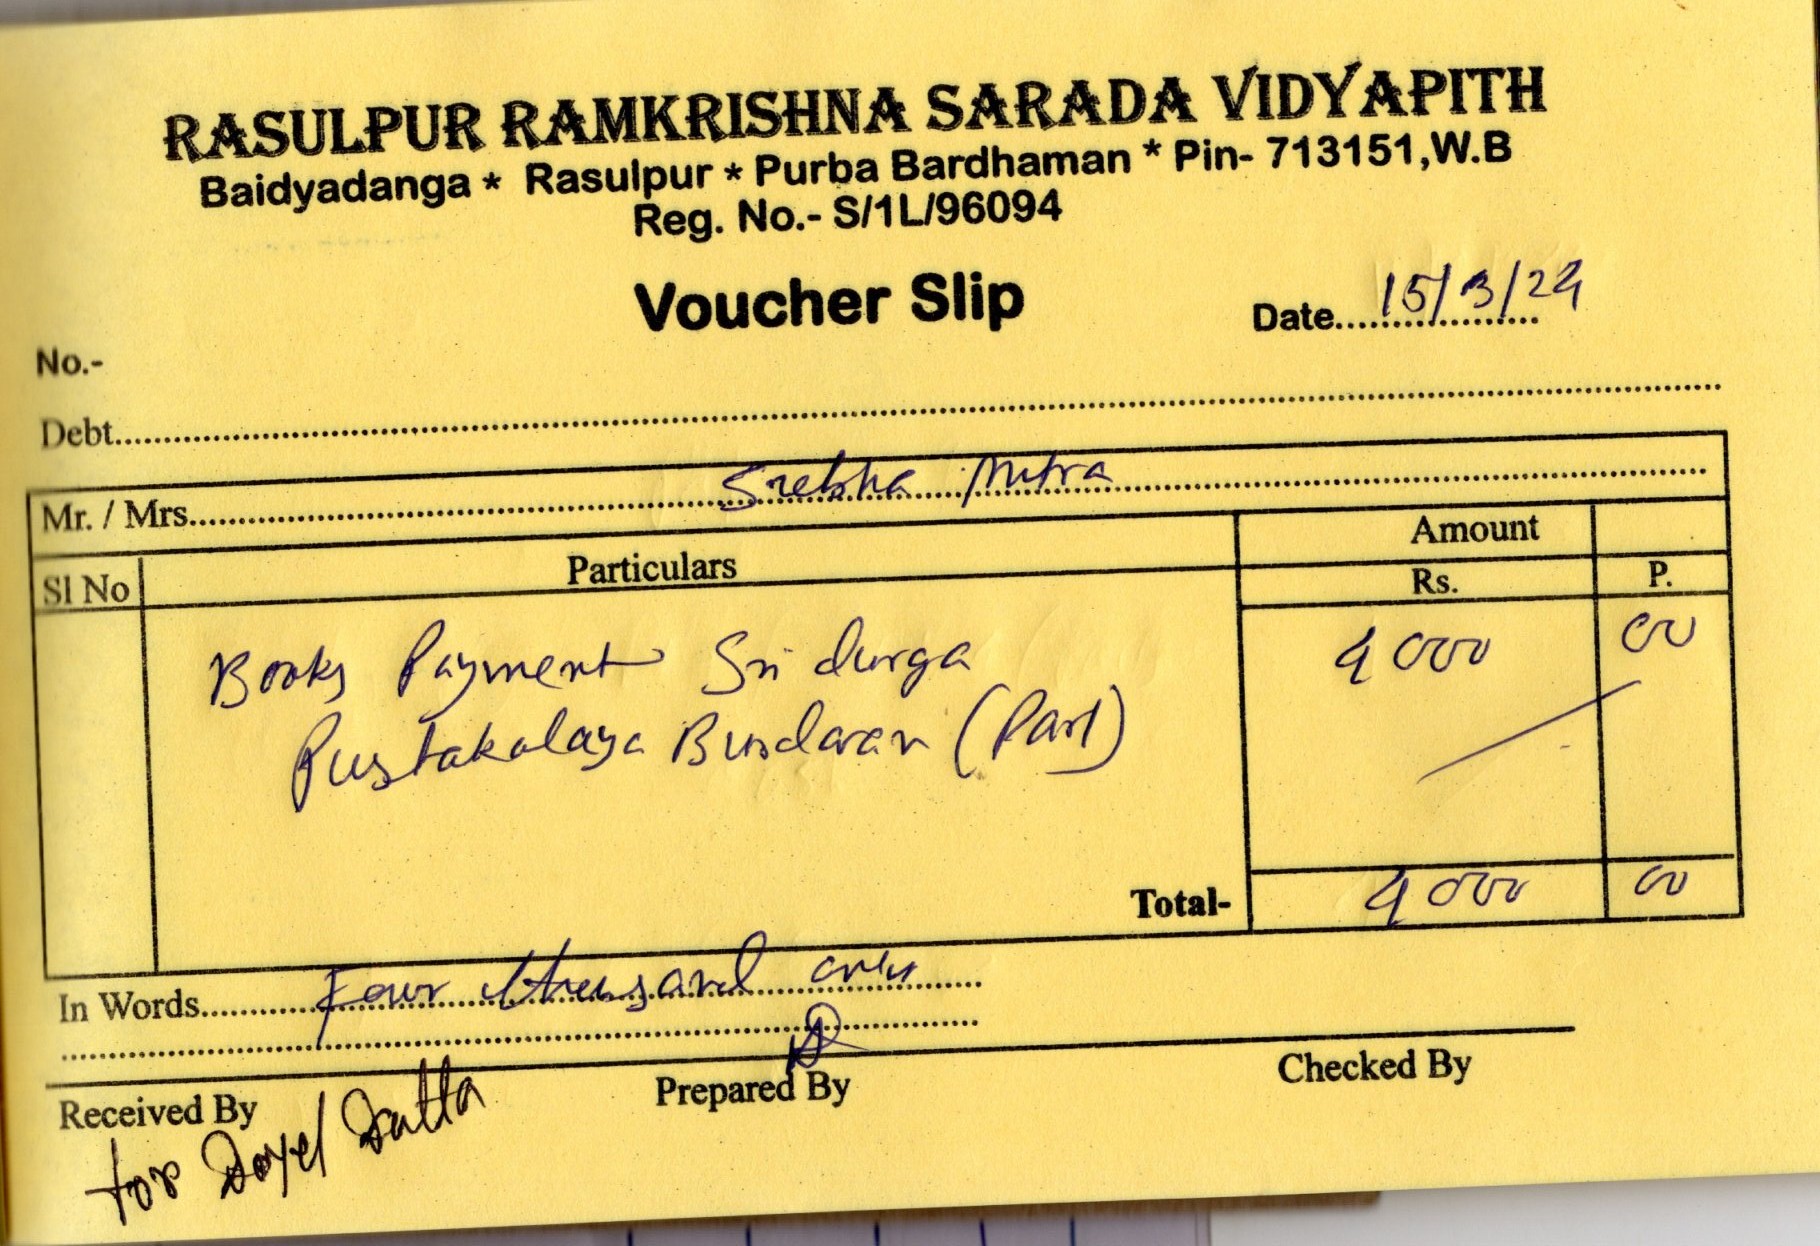 RASULPUR RAMKRISHNA SARADA VIDYAPITH
Baidyadanga * Rasulpur * Purba Bardhaman * Pin- 713151,W.B
Reg. No.- S/1L/96094
Voucher Slip
Date.................. 15/3/24
No.-
Debt..........
Mr. / Mrs.......... Mitra
Sl No Particulars Amount
Rs. P.
Books Payment Sri durga 4000 00
Pustakalaya Burdwan (Part)
Total- 4000 00
In Words.......... Four thousand only
Received By Prepared By Checked By
for Doyel Dutta